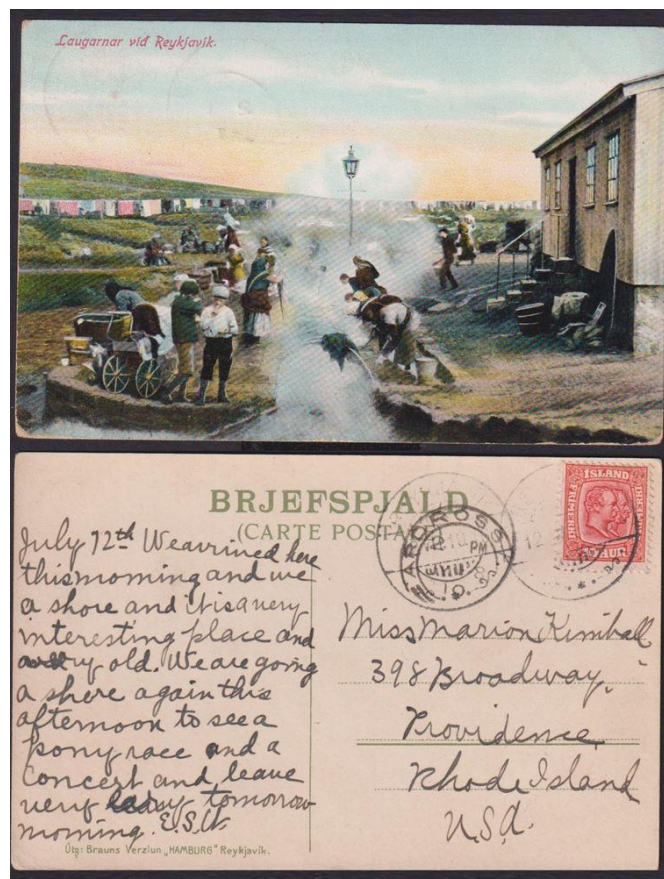 Laugarnar við Reykjavik.
BRJEFSPJALD
(CARTE POSTA
ISLAND
FRIMERKI
AUR
ARDROSS
PM
12
July 12th We arrived here
this morning and we
a shore and it is a very
interesting place and
very old. We are going
a shore again this
afternoon to see a
pony race and a
concert and leave
very tomorrow
morning. E.S.W.
Miss Marion Kimball
398 Broadway,
Providence,
Rhode Island
U.S.A.
Útg: Brauns Verzlun „HAMBURG" Reykjavik.